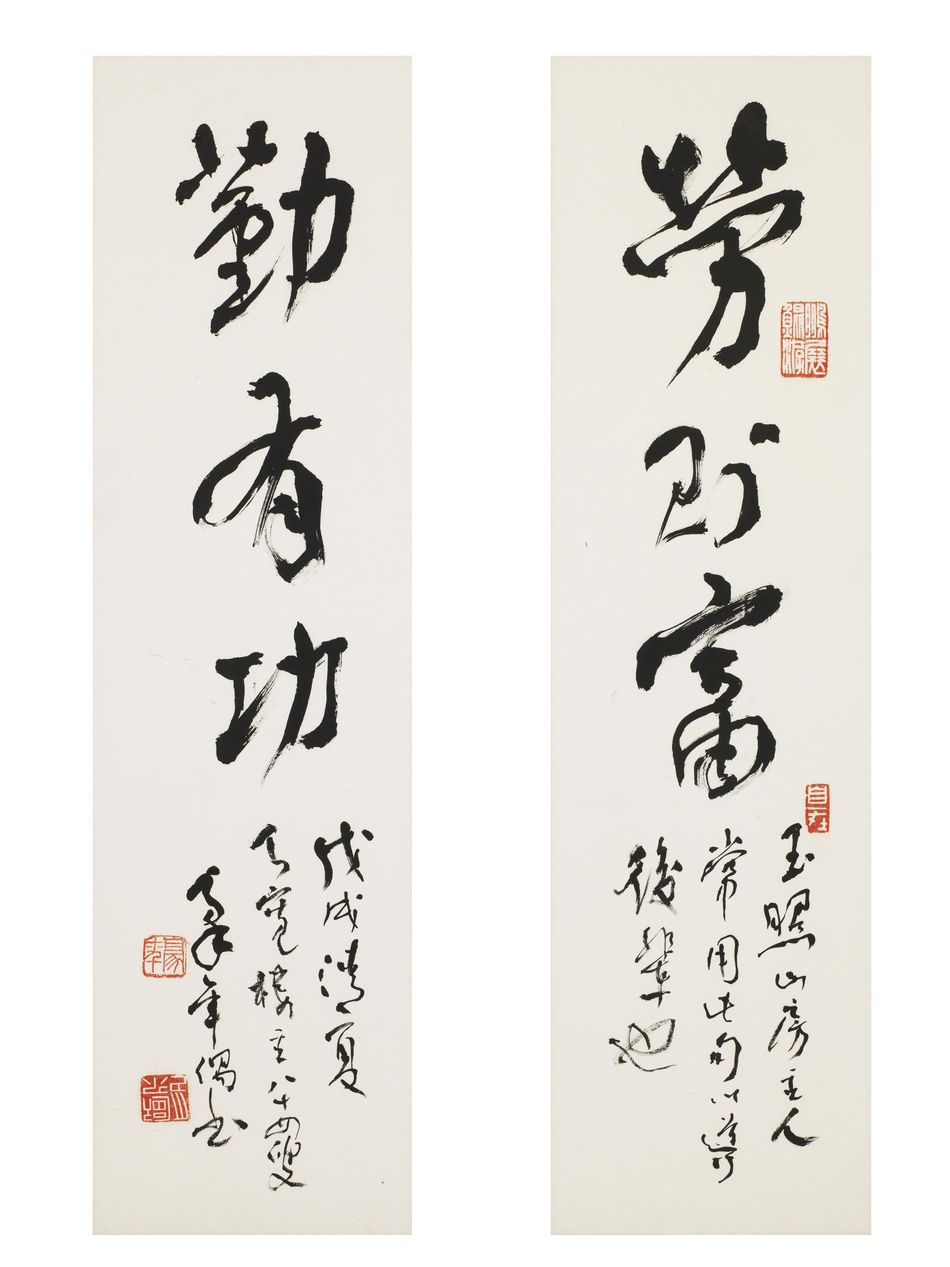 勞則富
自在
玉照山房主人
常用此句以導
後輩也
勤有功
戊戌清夏
天寬樓主八十四叟
豪年偶書
豪年